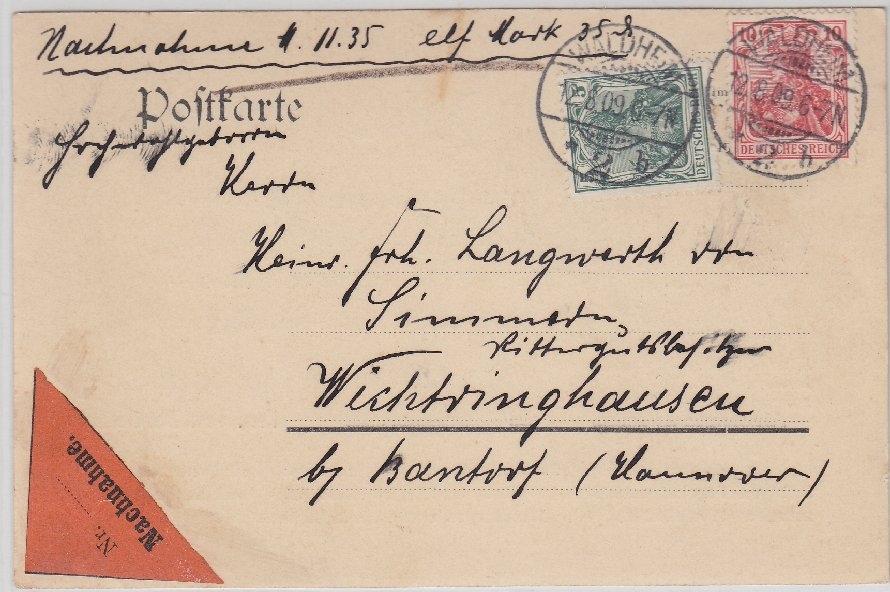 Nachnahme M. 11.35 elf Mark 35 ₰
Postkarte
Hochwohlgeboren
Herrn
Heinr. Frh. Langwerth von
Simmern,
Rittergutsbesitzer
Wichtringhausen
by Bantorf (Hannover)
5
DEUTSCHES REICH
WALDHEIM
12.8.09.6-7N
* 2 b
10 10
DEUTSCHES REICH
WALDHEIM
12.8.09.6-7N
* 2 b
Nachnahme.
Nr.